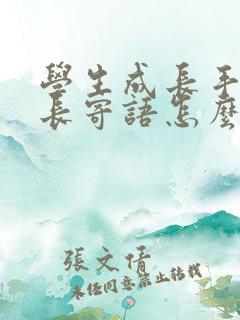 學生成長手
長寄語怎麼
張文倩
未经同意禁止转载